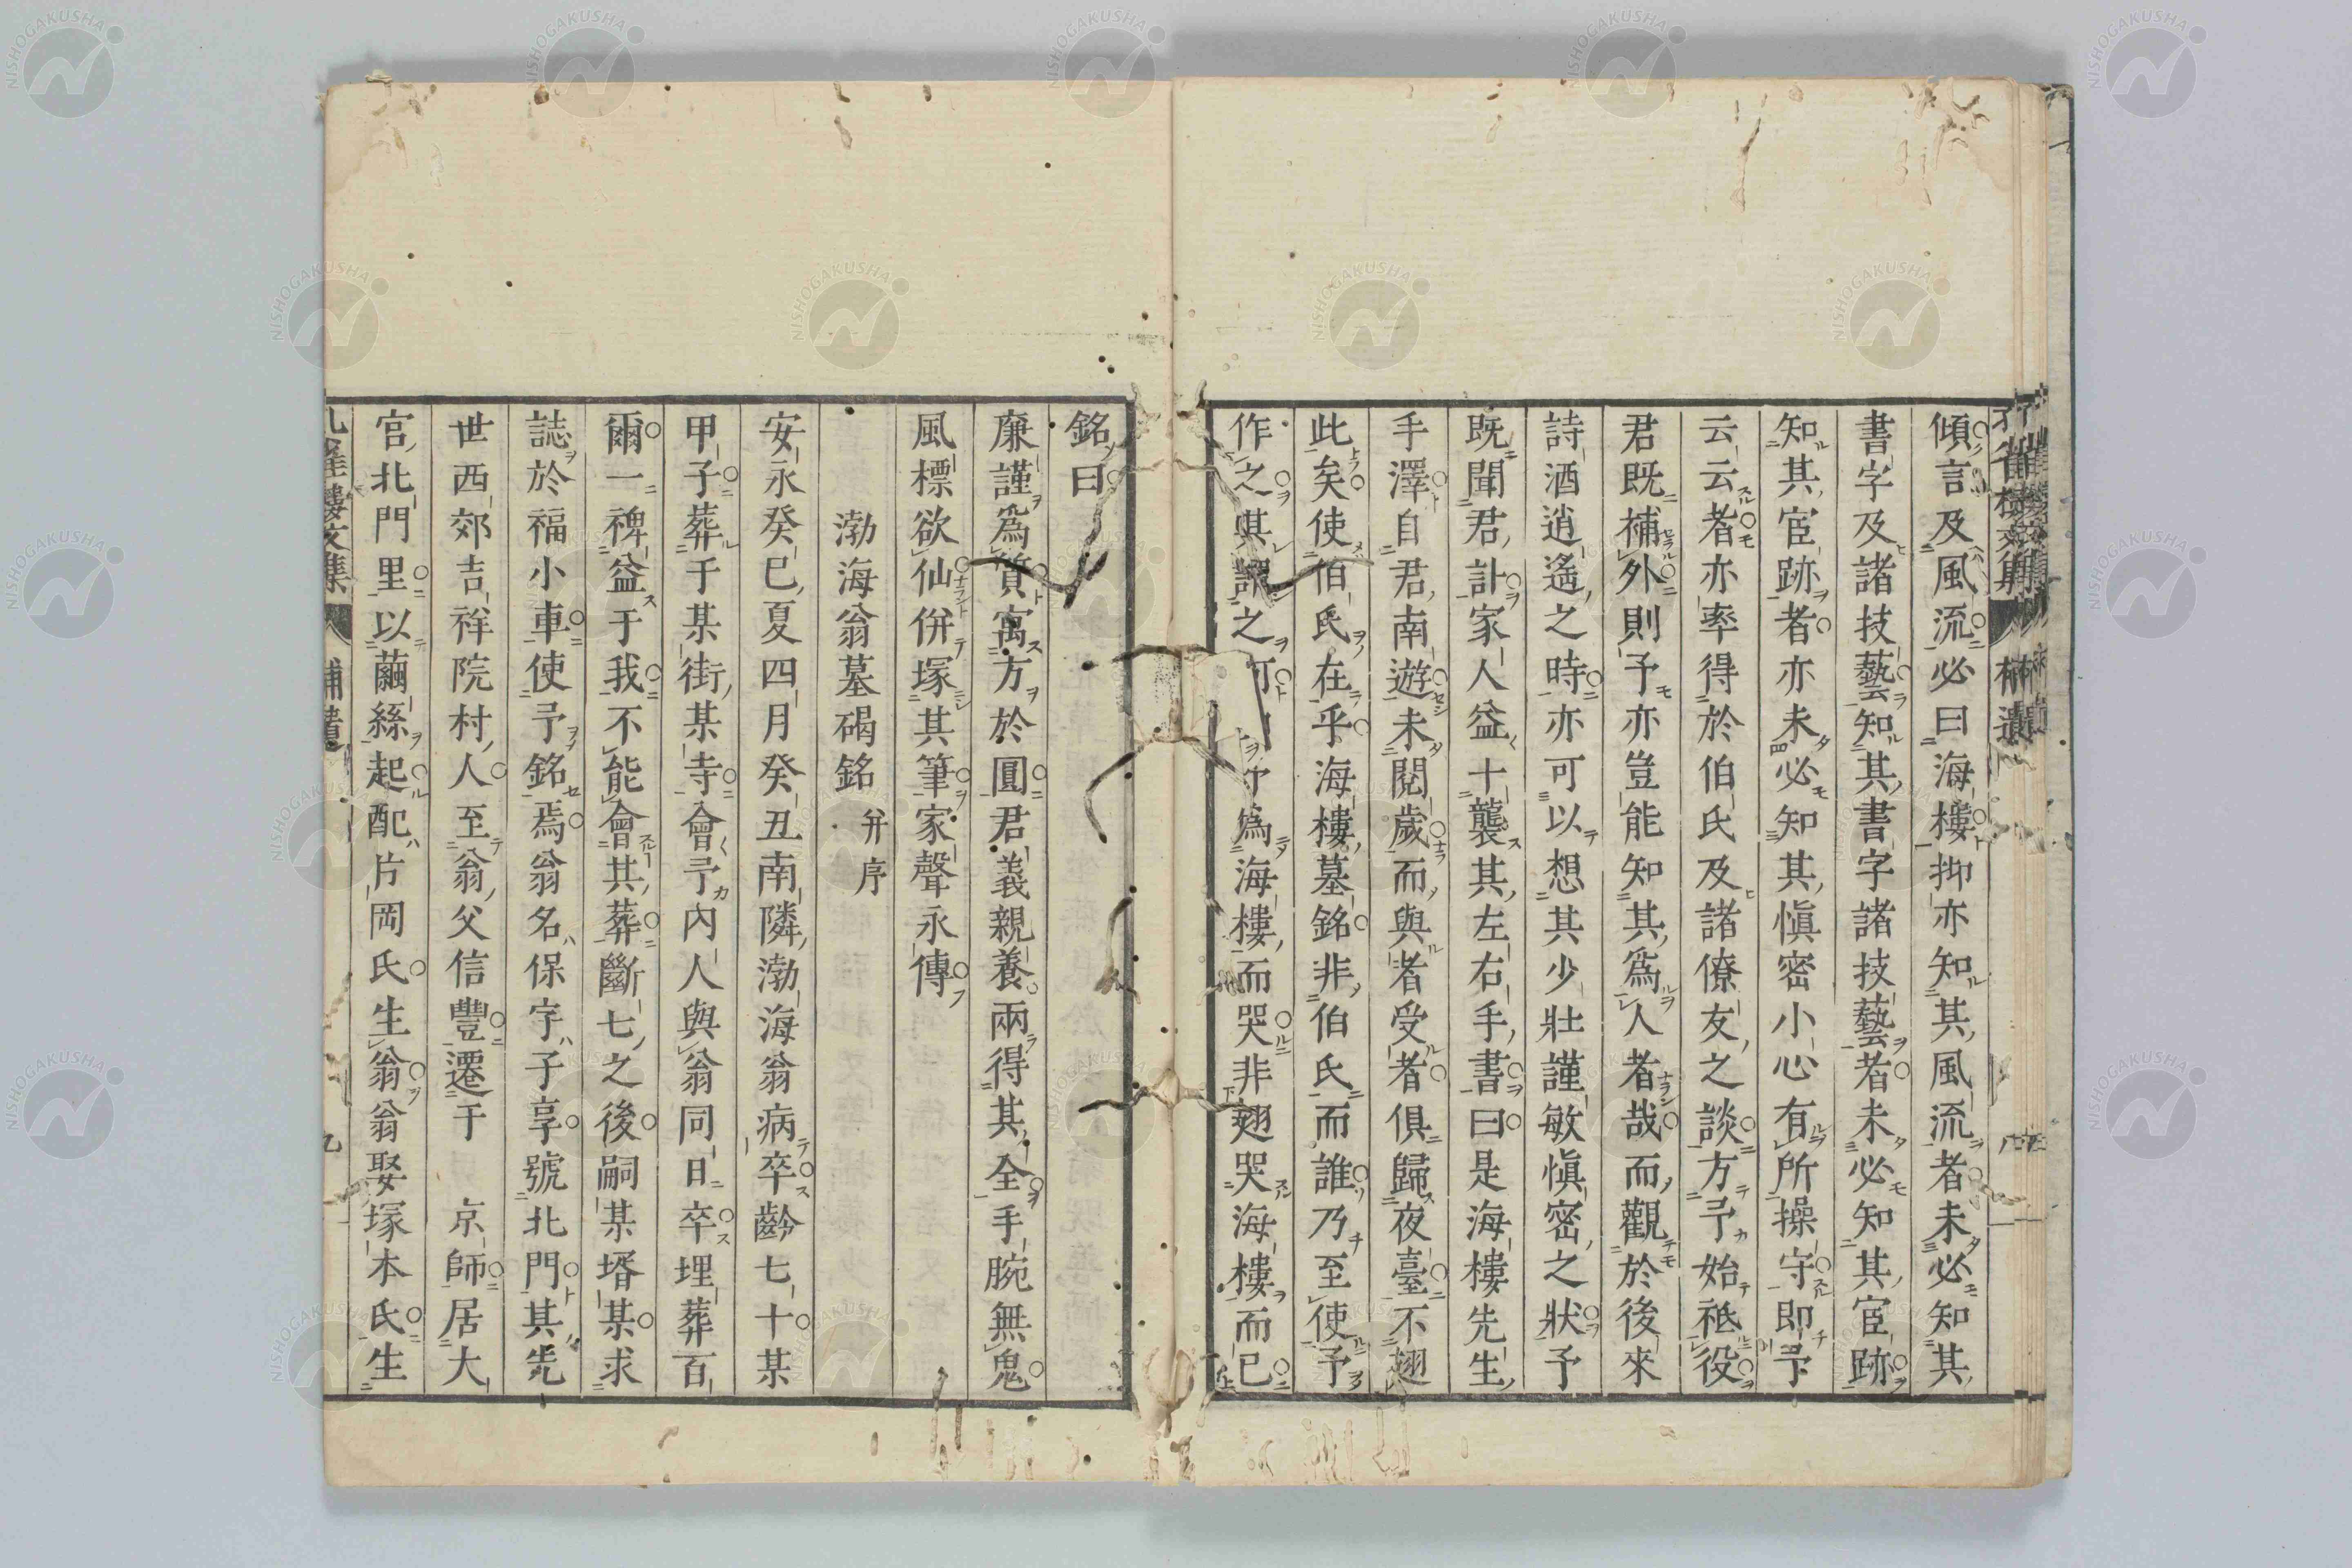 傾言及風流必曰海樓抑亦知其風流者未必知其
書字及諸技藝知其書字諸技藝者未必知其宦跡
知其宦跡者亦未必知其愼密小心有所操守即予
云云者亦率得於伯氏及諸僚友之談方予始祗役
君既補外則予亦豈能知其爲人者哉而觀於後來
詩酒逍遙之時亦可以想其少壯謹敏愼密之狀予
既聞君訃家人益十襲其左右手書曰是海樓先生
手澤自君南遊未閱歲而與者受者俱歸夜臺不翅
此矣使伯氏在乎海樓墓銘非伯氏而誰乃至使予
作之其謂之何爲海樓而哭非翅哭海樓而已
銘曰
廉謹爲質寓方於圓君義親養兩得其全手腕無鬼
風標欲仙併塚其筆家聲永傳
渤海翁墓碣銘 幷序
安永癸巳夏四月癸丑南隣渤海翁病卒齡七十某
甲子葬于某街某寺會予內人與翁同日卒埋葬百
爾一裨益于我不能會其葬斷七之後嗣某壻某求
誌於福小車使予銘焉翁名保字子享號北門其先
世西郊吉祥院村人至翁父信豐遷于 京師居大
宮北門里以繭絲起配片岡氏生翁翁娶塚本氏生
孔雀樓文集 補遺 九
NISHOGAKUSHA